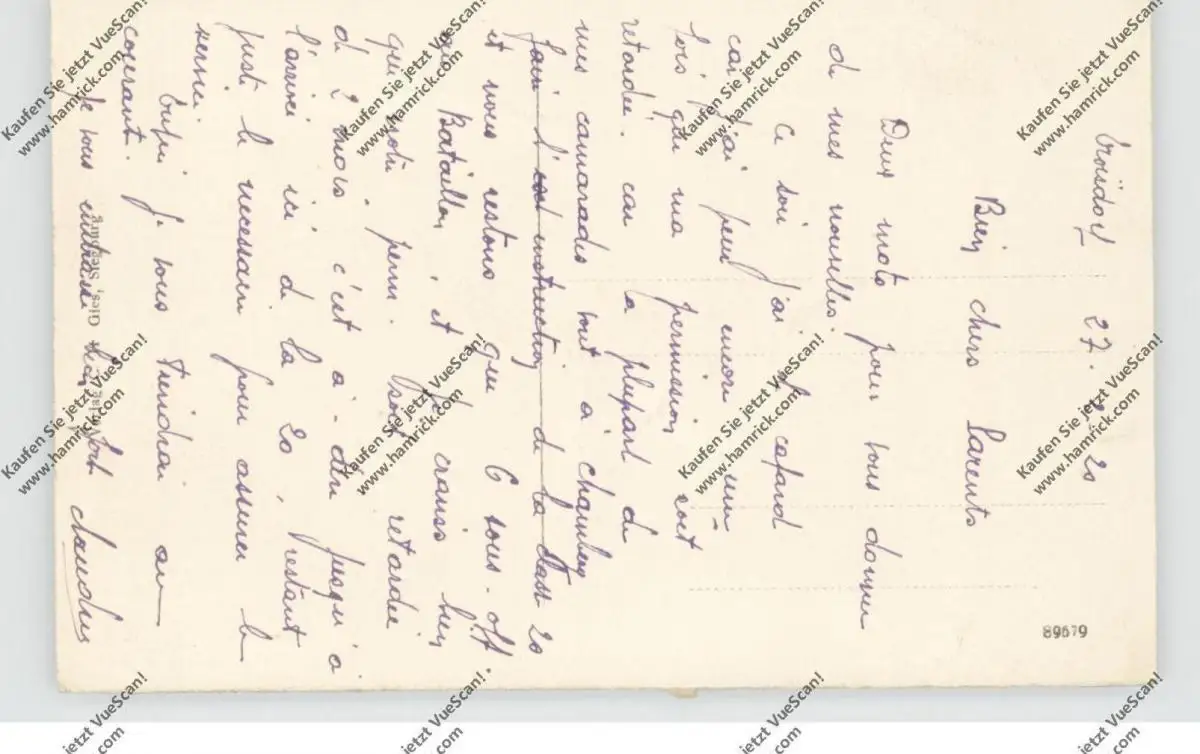 Troisdorf 27. 2. 20
Bien chers Parents
Deux mots pour vous donner
de mes nouvelles.
Ce soir j'ai le cafard
car j'ai peur encore une
fois que ma permission soit
retardée. car la plupart de
mes camarades vont à Chambery
faire l'instruction de la classe 20
et nous restons que 6 sous-off.
au Bataillon, et je crains bien
que notre perm. soit retardée
de 2 mois c'est à-dire jusqu'à
l'arrivée ici de la 20, restant
juste le necessaire pour assurer le
service.
Enfin je vous tiendrai au
courant.
Je vous embrasse bien fort
Claudius
89679
Gies, Siegburg
Kaufen Sie jetzt VueScan!
www.hamrick.com
Kaufen Sie jetzt VueScan!
www.hamrick.com
Kaufen Sie jetzt VueScan!
www.hamrick.com
Kaufen Sie jetzt VueScan!
www.hamrick.com
Kaufen Sie jetzt VueScan!
www.hamrick.com
Kaufen Sie jetzt VueScan!
www.hamrick.com
Kaufen Sie jetzt VueScan!
www.hamrick.com
Kaufen Sie jetzt VueScan!
www.hamrick.com
jetzt VueScan!
.com
jetzt VueScan!
.com
jetzt VueScan!
.com
jetzt VueScan!
.com